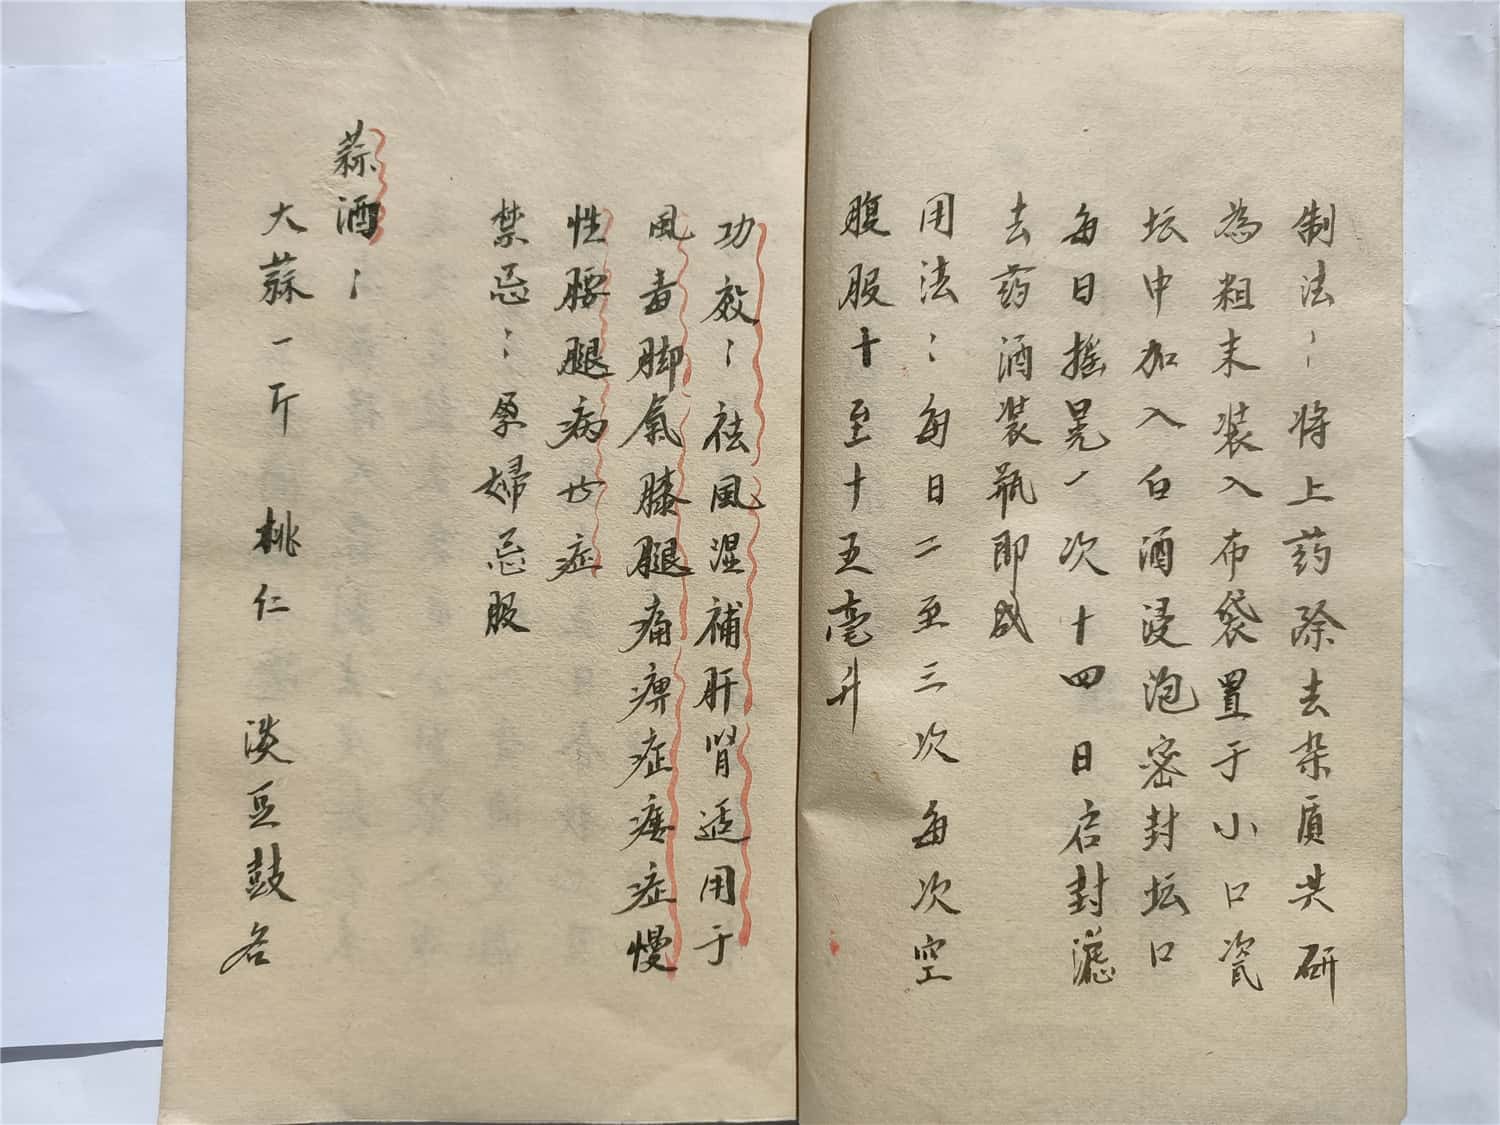 制法：将上药除去杂质共研
为粗末装入布袋置于小口瓷
坛中加入白酒浸泡密封坛口
每日摇晃一次十四日启封滤
去药酒装瓶即成
用法：每日二至三次每次空
腹服十至十五毫升
功效：祛风湿补肝肾适用于
風毒脚氣膝腿痛痹症痿症慢
性腰腿病等症
禁忌：孕婦忌服
蒜酒：
大蒜一斤 桃仁 淡豆鼓各